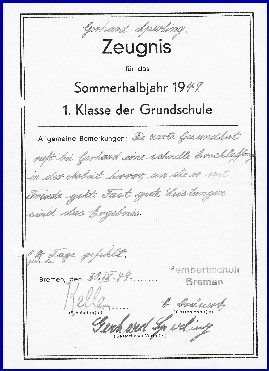 Gerhard Sperling
Zeugnis
für das
Sommerhalbjahr 1949
1. Klasse der Grundschule
Allgemeine Bemerkungen: Die zarte Gesundheit
ruft bei Gerhard eine schnelle Erschlaffung
in der Arbeit hervor, an die er mit
Freude geht. Fast gute Leistungen
sind das Ergebnis.
Tage gefehlt.
Bremen, den 30.IX.49.
Rembertischule
Bremen
Gerhard Sperling